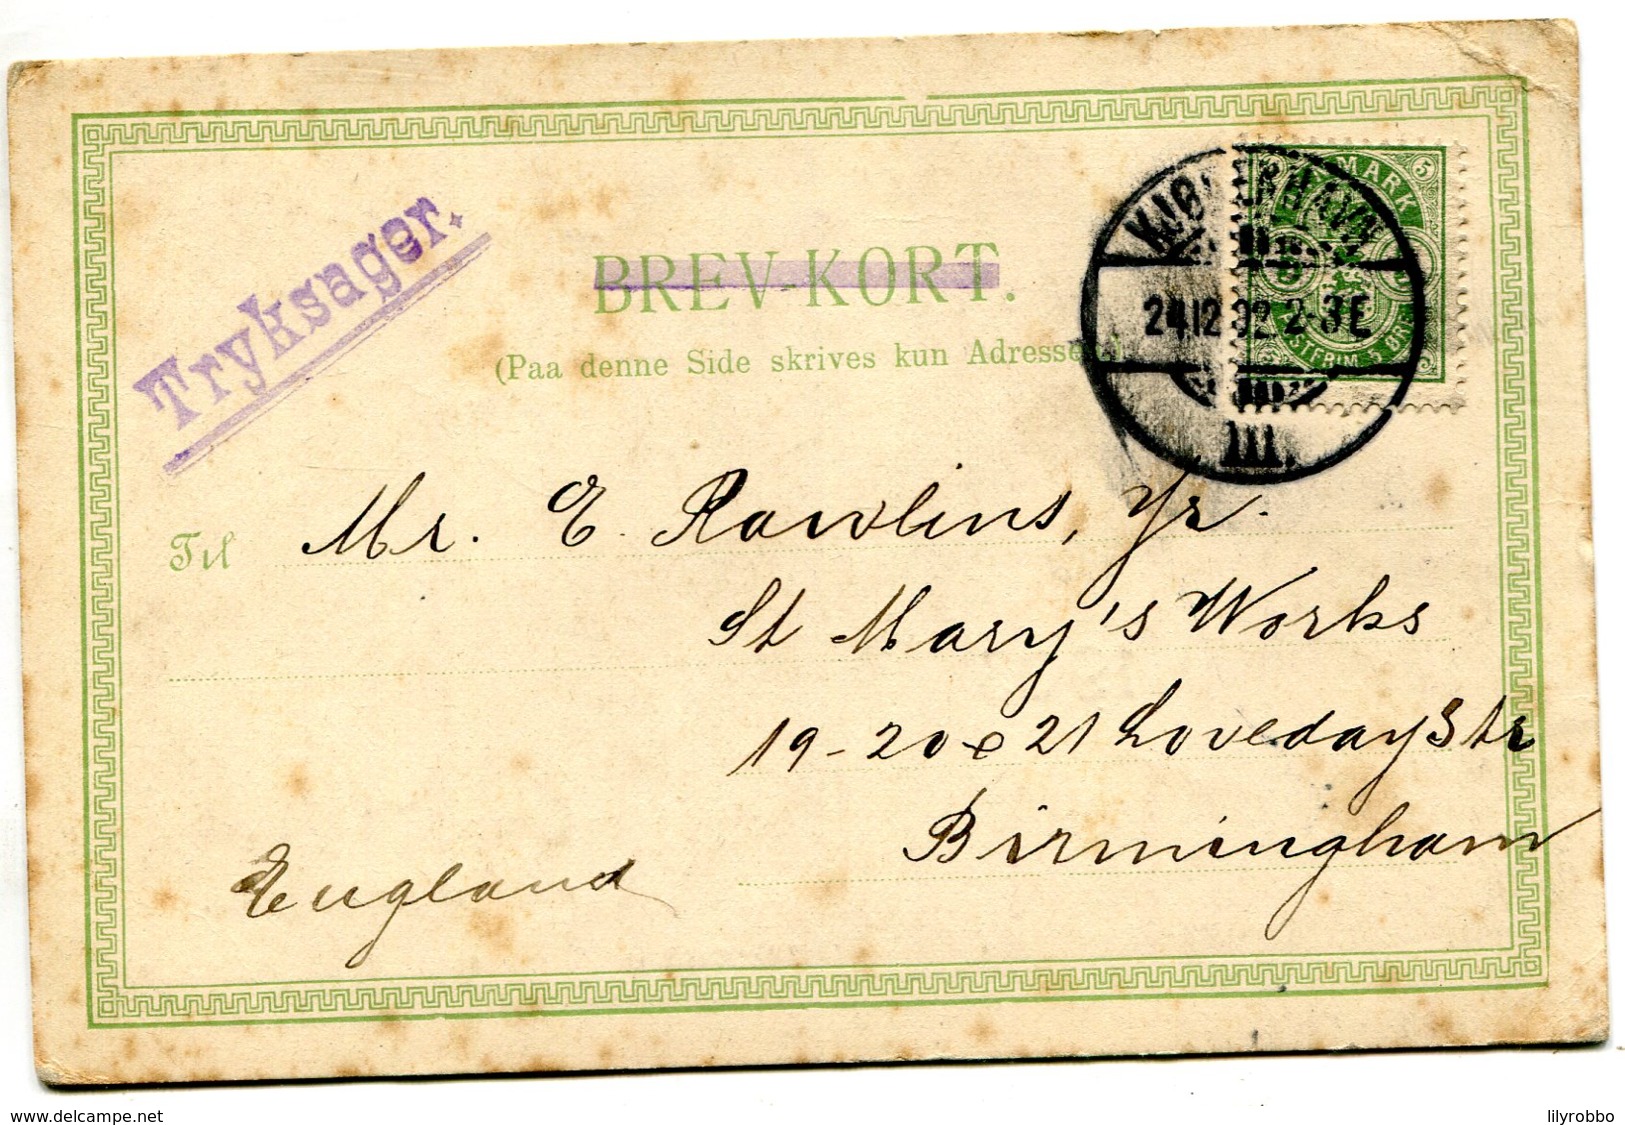 Tryksager.
BREV-KORT.
(Paa denne Side skrives kun Adressen.)
KJØBENHAVN
24.12.02 2-3E
III.
DANMARK
5
POSTFRIM. 5 ØRE
Til Mr. E. Rawlins, Jr.
St Mary's Works
19-20 & 21 Loveday Str
Birmingham
England
www.delcampe.net
lilyrobbo